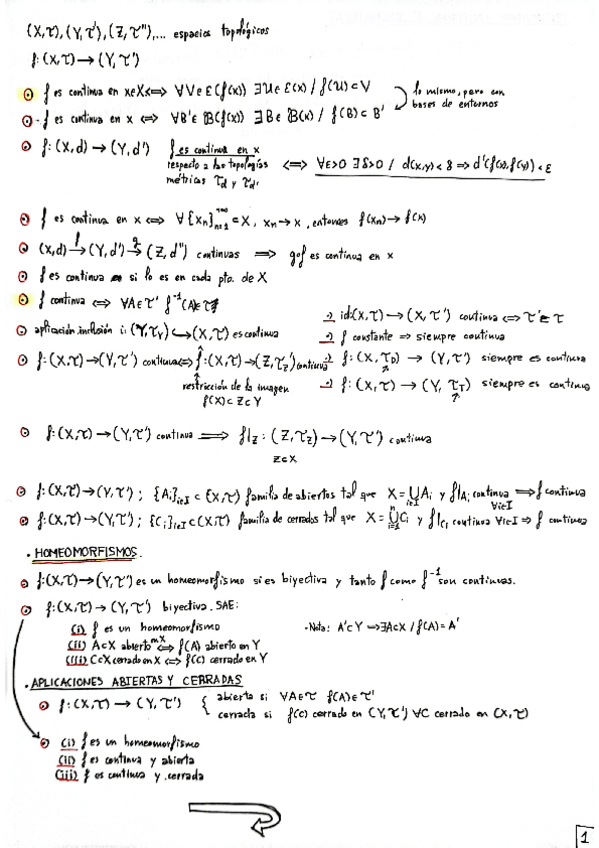 (X,τ),(Y,τ'),(Z,τ''),... espacios topológicos
f:(X,τ)→(Y,τ')
⊙ f es continua en x∈X ⟺ ∀V∈Ɛ(f(x)) ∃U∈Ɛ(x) / f(U)⊂V
lo mismo, pero con bases de entornos
⊙ - f es continua en x ⟺ ∀B'∈ 𝔹(f(x)) ∃B∈ 𝔹(x) / f(B)⊂B'
⊙ f:(X,d)→(Y,d') f es continua en x respecto a las topologías métricas τ_d y τ_d' ⟺ ∀ε>0 ∃δ>0 / d(x,y)<δ ⇒ d'(f(x),f(y))<ε
⊙ f es continua en x ⟺ ∀{x_n}_{n=1}^{+∞}⊂X, x_n→x, entonces f(x_n)→f(x)
⊙ (X,d) →f (Y,d') →g (Z,d'') continuas ⟹ g∘f es continua en x
⊙ f es continua si lo es en cada pto. de X
⊙ f continua ⟺ ∀A∈τ' f⁻¹(A)∈τ
⊙ aplicación inclusión i:(Y,τ_Y)↪(X,τ) es continua
→ id:(X,τ)→(X,τ') continua ⟺ τ'⊆τ
→ f constante ⇒ siempre continua
⊙ f:(X,τ)→(Y,τ') continua ⟺ f:(X,τ)→(Z,τ_Z') continua
restricción de la imagen
f(X)⊂Z⊂Y
→ f:(X,τ_D)→(Y,τ') siempre es continua
→ f:(X,τ)→(Y,τ_T) siempre es continua
⊙ f:(X,τ)→(Y,τ') continua ⟹ f|_Z:(Z,τ_Z)→(Y,τ') continua
Z⊂X
⊙ f:(X,τ)→(Y,τ'); {A_i}_{i∈I}⊂(X,τ) familia de abiertos tal que X=⋃_{i∈I}A_i y f|A_i continua ∀i∈I ⟹ f continua
⊙ f:(X,τ)→(Y,τ'); {C_i}_{i∈I}⊂(X,τ) familia de cerrados tal que X=⋃_{i=1}^{n}C_i y f|C_i continua ∀i∈I ⇒ f continua
· HOMEOMORFISMOS.
⊙ f:(X,τ)→(Y,τ') es un homeomorfismo si es biyectiva y tanto f como f⁻¹ son continuas.
⊙ f:(X,τ)→(Y,τ') biyectiva. SAE:
(i) f es un homeomorfismo
· Nota: A'⊂Y ⇒∃A⊂X / f(A)=A'
(ii) A⊂X abierto en X ⟺ f(A) abierto en Y
(iii) C⊂X cerrado en X ⟺ f(C) cerrado en Y
· APLICACIONES ABIERTAS Y CERRADAS
⊙ f:(X,τ)→(Y,τ') { abierta si ∀A∈τ f(A)∈τ'
cerrada si f(C) cerrado en (Y,τ') ∀C cerrado en (X,τ)
⊙ (i) f es un homeomorfismo
(ii) f es continua y abierta
(iii) f es continua y cerrada
1